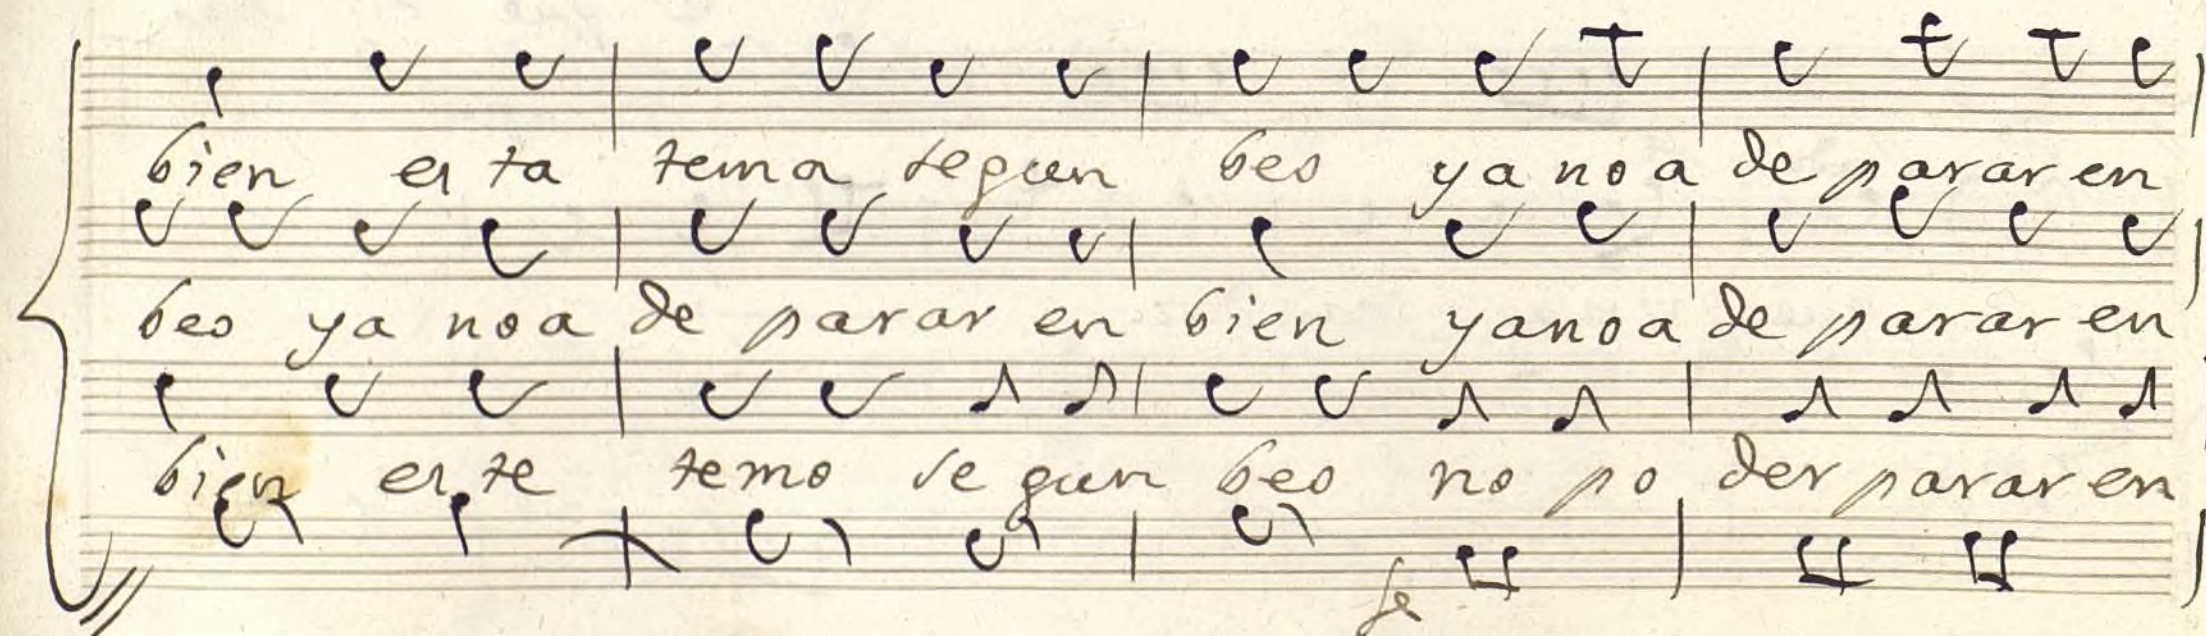 bien esta tema segun bes ya no a de parar en
bes ya no a de parar en bien ya no a de parar en
bien este temo segun bes no poder parar en
fe